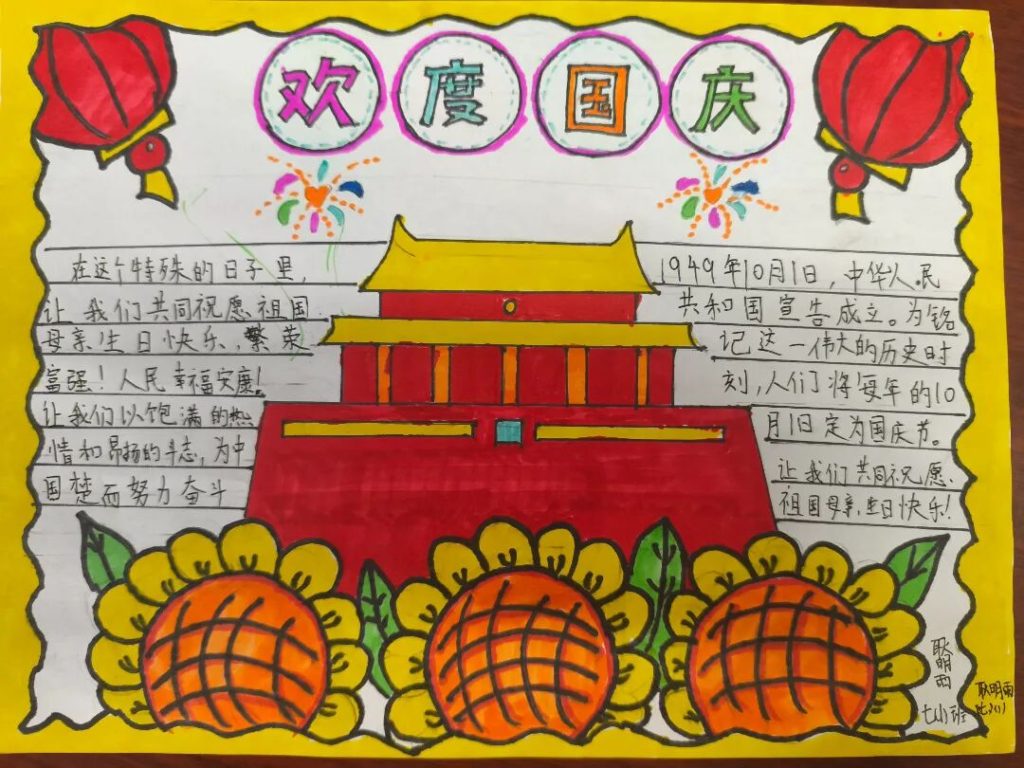 欢度国庆
在这个特殊的日子里，
让我们共同祝愿祖国
母亲生日快乐，繁荣
富强！人民幸福安康！
让我们以饱满的热
情和昂扬的斗志，为中
国梦而努力奋斗
1949年10月1日，中华人民
共和国宣告成立。为铭
记这一伟大的历史时
刻，人们将每年的10
月1日定为国庆节。
让我们共同祝愿
祖国母亲生日快乐！
耿明雨
班
耿明雨